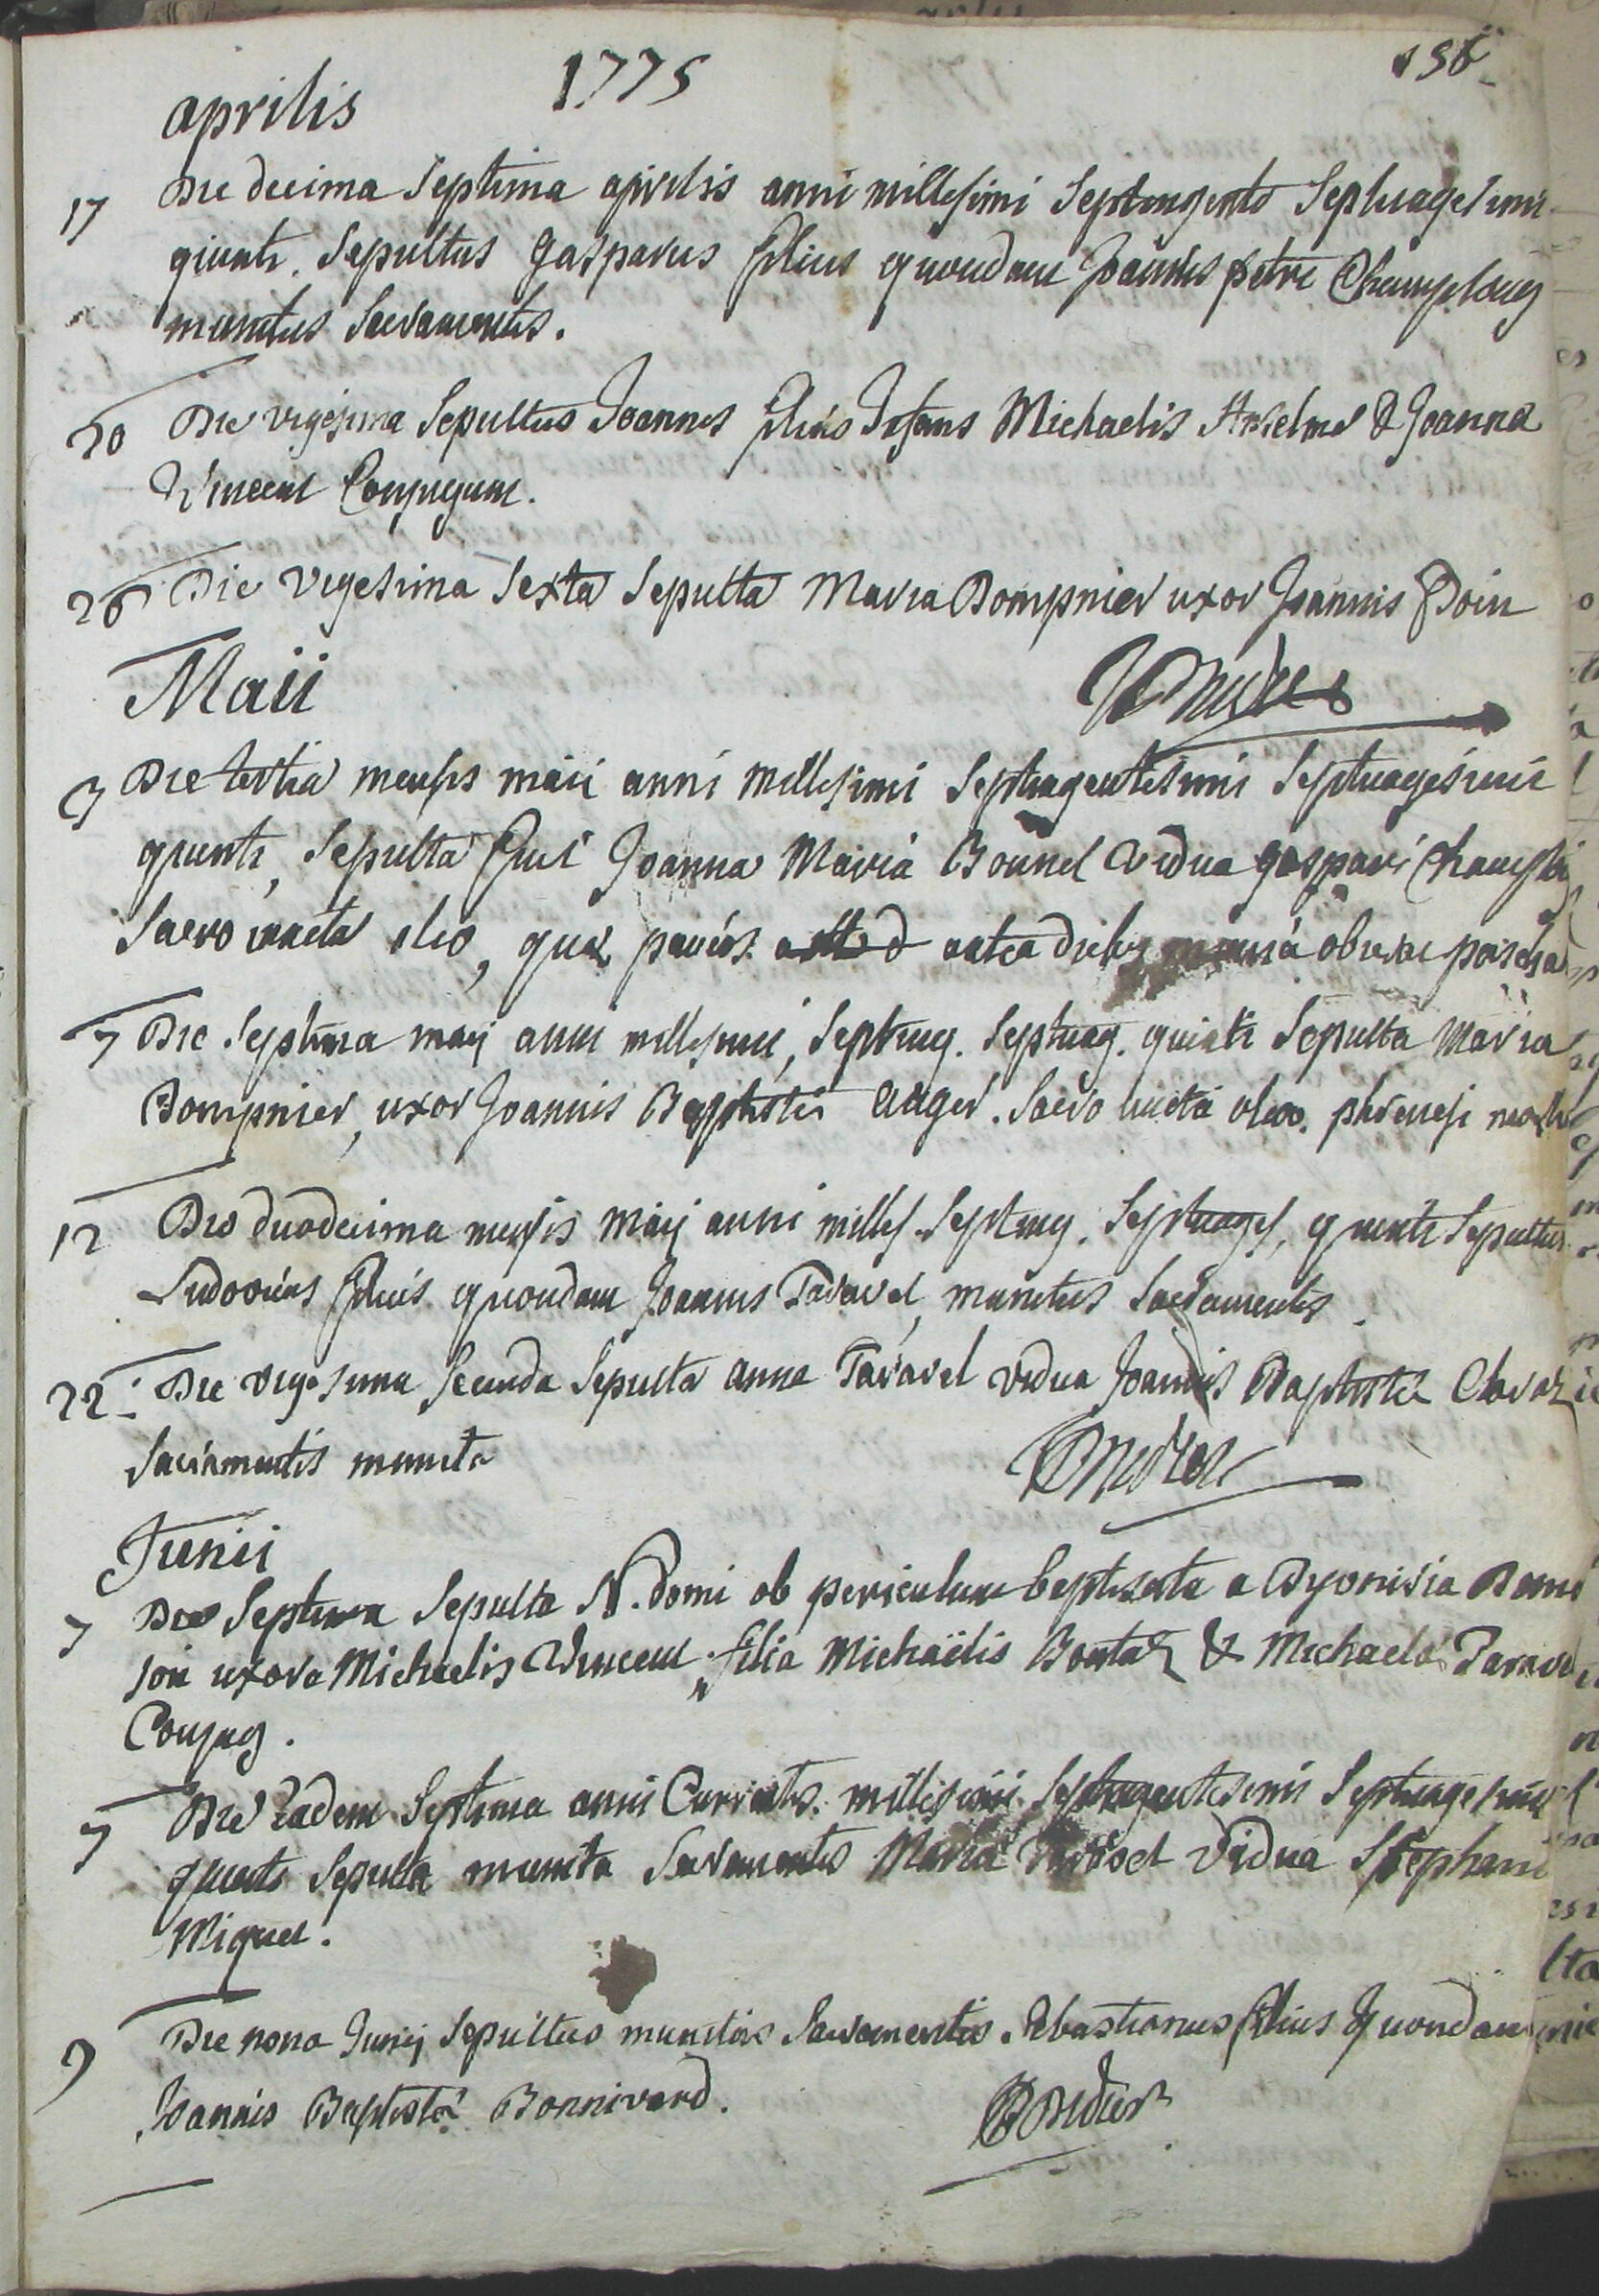 1775
156
aprilis
17 Die decima Septima aprilis anni millesimi Septingente Septuagesimi
quinti. Sepultus Gasparus filius quondam Joannis petri Champlong
munitus Sacramentis.
20 Die vigesima Sepultus Joannes filius Infans Michaelis Anselme & Joanna
Vincent Conjugum.
26 Die vigesima Sexta Sepulta Maria Bompnier uxor Joannis Doin
Maii
3 Die tertia mensis maii anni millesimi Septingentesimi Septuagesimi
quinti, Sepulta fuit Joanna Maria Bonnel vidua gaspari
Sacro uncta oleo, quæ paucis antea diebus
7 Die Septima maij anni millesimi, Septing. Septuag. quinti Sepulta Maria
Bompnier, uxor Joannis Baptistæ Auger. Sacro uncta oleo. phrenesi
12 Die duodecima mensis maij anni milles. Septing. Septuages. quinti Sepultus
Ludovicus filius quondam Joannis Taravel, munitus Sacramentis.
22. Die vigesima Secunda Sepulta anna Taravel vidua Joannis Baptistæ
Sacramentis munita
Junii
7 Die Septima Sepulta N. domi ob periculum baptisata a Dyonisia
uxore Michaelis Vincent, filia Michaëlis & Michaelæ
Conjug.
7 Die Eadem Septima anni Currentis. millesimi Septingentesimi Septuagesimi
quinti Sepulta munita Sacramentis Maria vidua Stephani
Miquet.
9 Die nona Junij Sepultus munitus Sacramentis. Sebastianus filius quondam
Joannis Baptistæ Bonnivard.